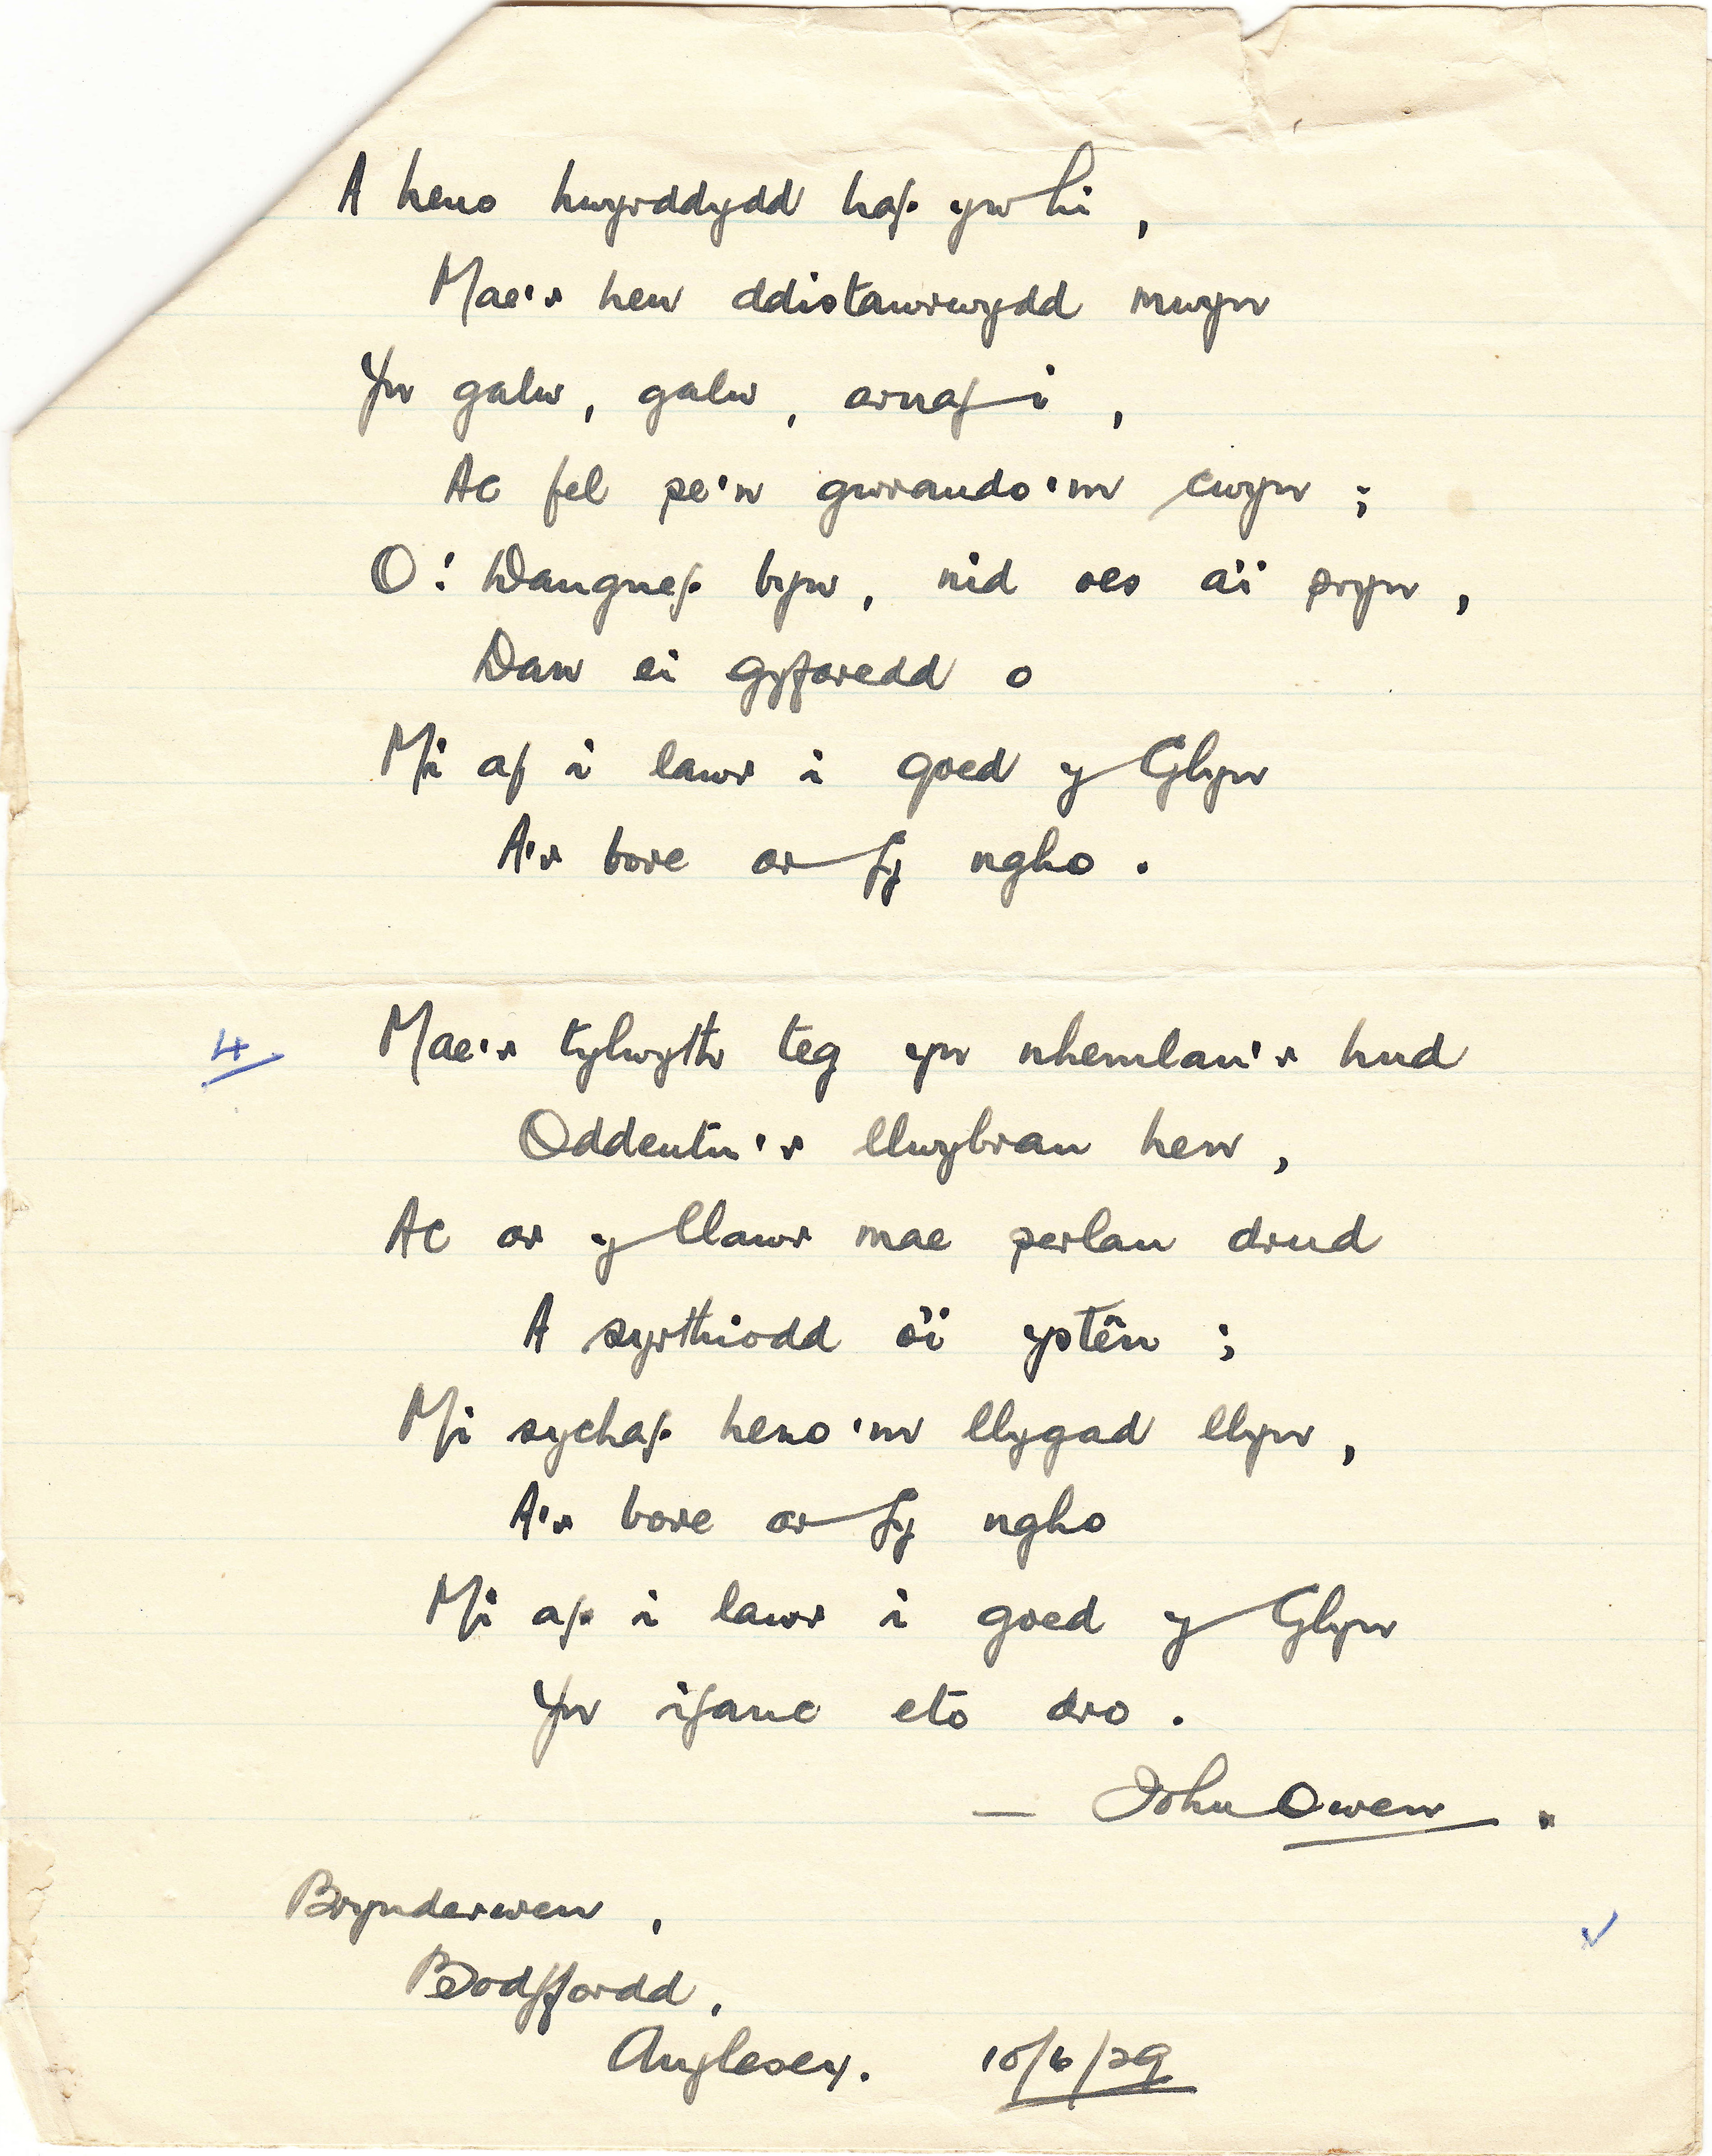 A heno hwyrddydd haf yw hi,
Mae'r hen ddistawrwydd mwyn
Yn galw, galw, arnaf i,
Ac fel pe'n gwrando'm cwyn;
O! Dangnef byw, nid oes a'i pryn,
Dan ei gyfaredd o
Mi af i lawr i goed y Glyn
A'r bore ar fy ngho.
4 Mae'r tylwyth teg yn nhemlau'r hud
Oddeutu'r llwybrau hen,
Ac ar y llawr mae perlau drud
A syrthiodd o'i ystên;
Mi sychaf heno'm llygad llyn,
A'r bore ar fy ngho
Mi af i lawr i goed y Glyn
Yn ifanc eto dro.
— John Owen.
Brynderwen,
Bodffordd,
Anglesey. 10/6/29